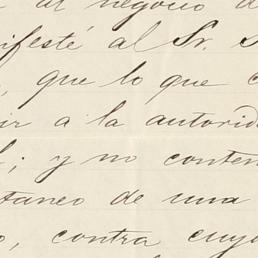 al negocio d
nifesté al Sr. S
, que lo que c
ir a la autorid
l; y no conten
taneo de una
o, contra cuyo